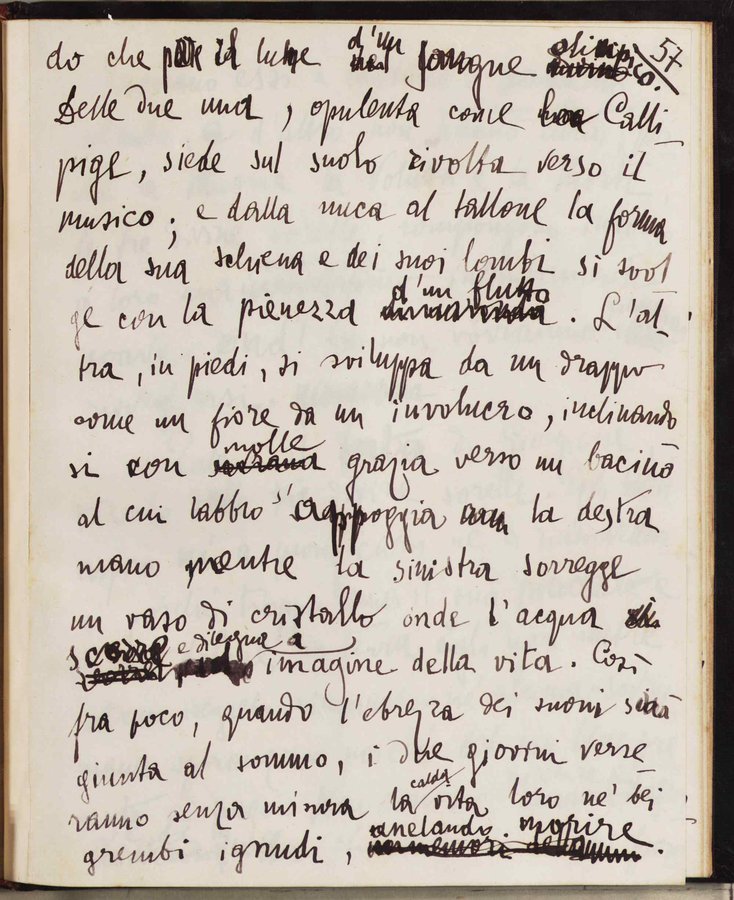 57
do che pare il lume d'un sangue olimpico.
Delle due una, opulenta come la Calli
pige, siede sul suolo rivolta verso il
musico; e dalla nuca al tallone la forma
della sua schiena e dei suoi lombi si svol
ge con la pienezza d'un flutto. L'al
tra, in piedi, si sviluppa da un drappo
come un fiore da un involucro, inclinando
si con molle grazia verso un bacino
al cui labbro s'appoggia con la destra
mano mentre la sinistra sorregge
un vaso di cristallo onde l'acqua
scorre e dilegua a imagine della vita. Così
fra poco, quando l'ebrezza dei suoni sarà
giunta al sommo, i due giovini verse
ranno senza misura la calda vita loro ne' bei
grembi ignudi, anelando morire.